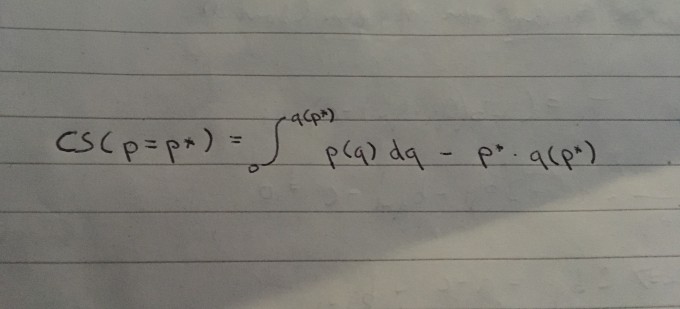 CS(p=p*) = ∫₀^{q(p*)} p(q) dq - p* · q(p*)